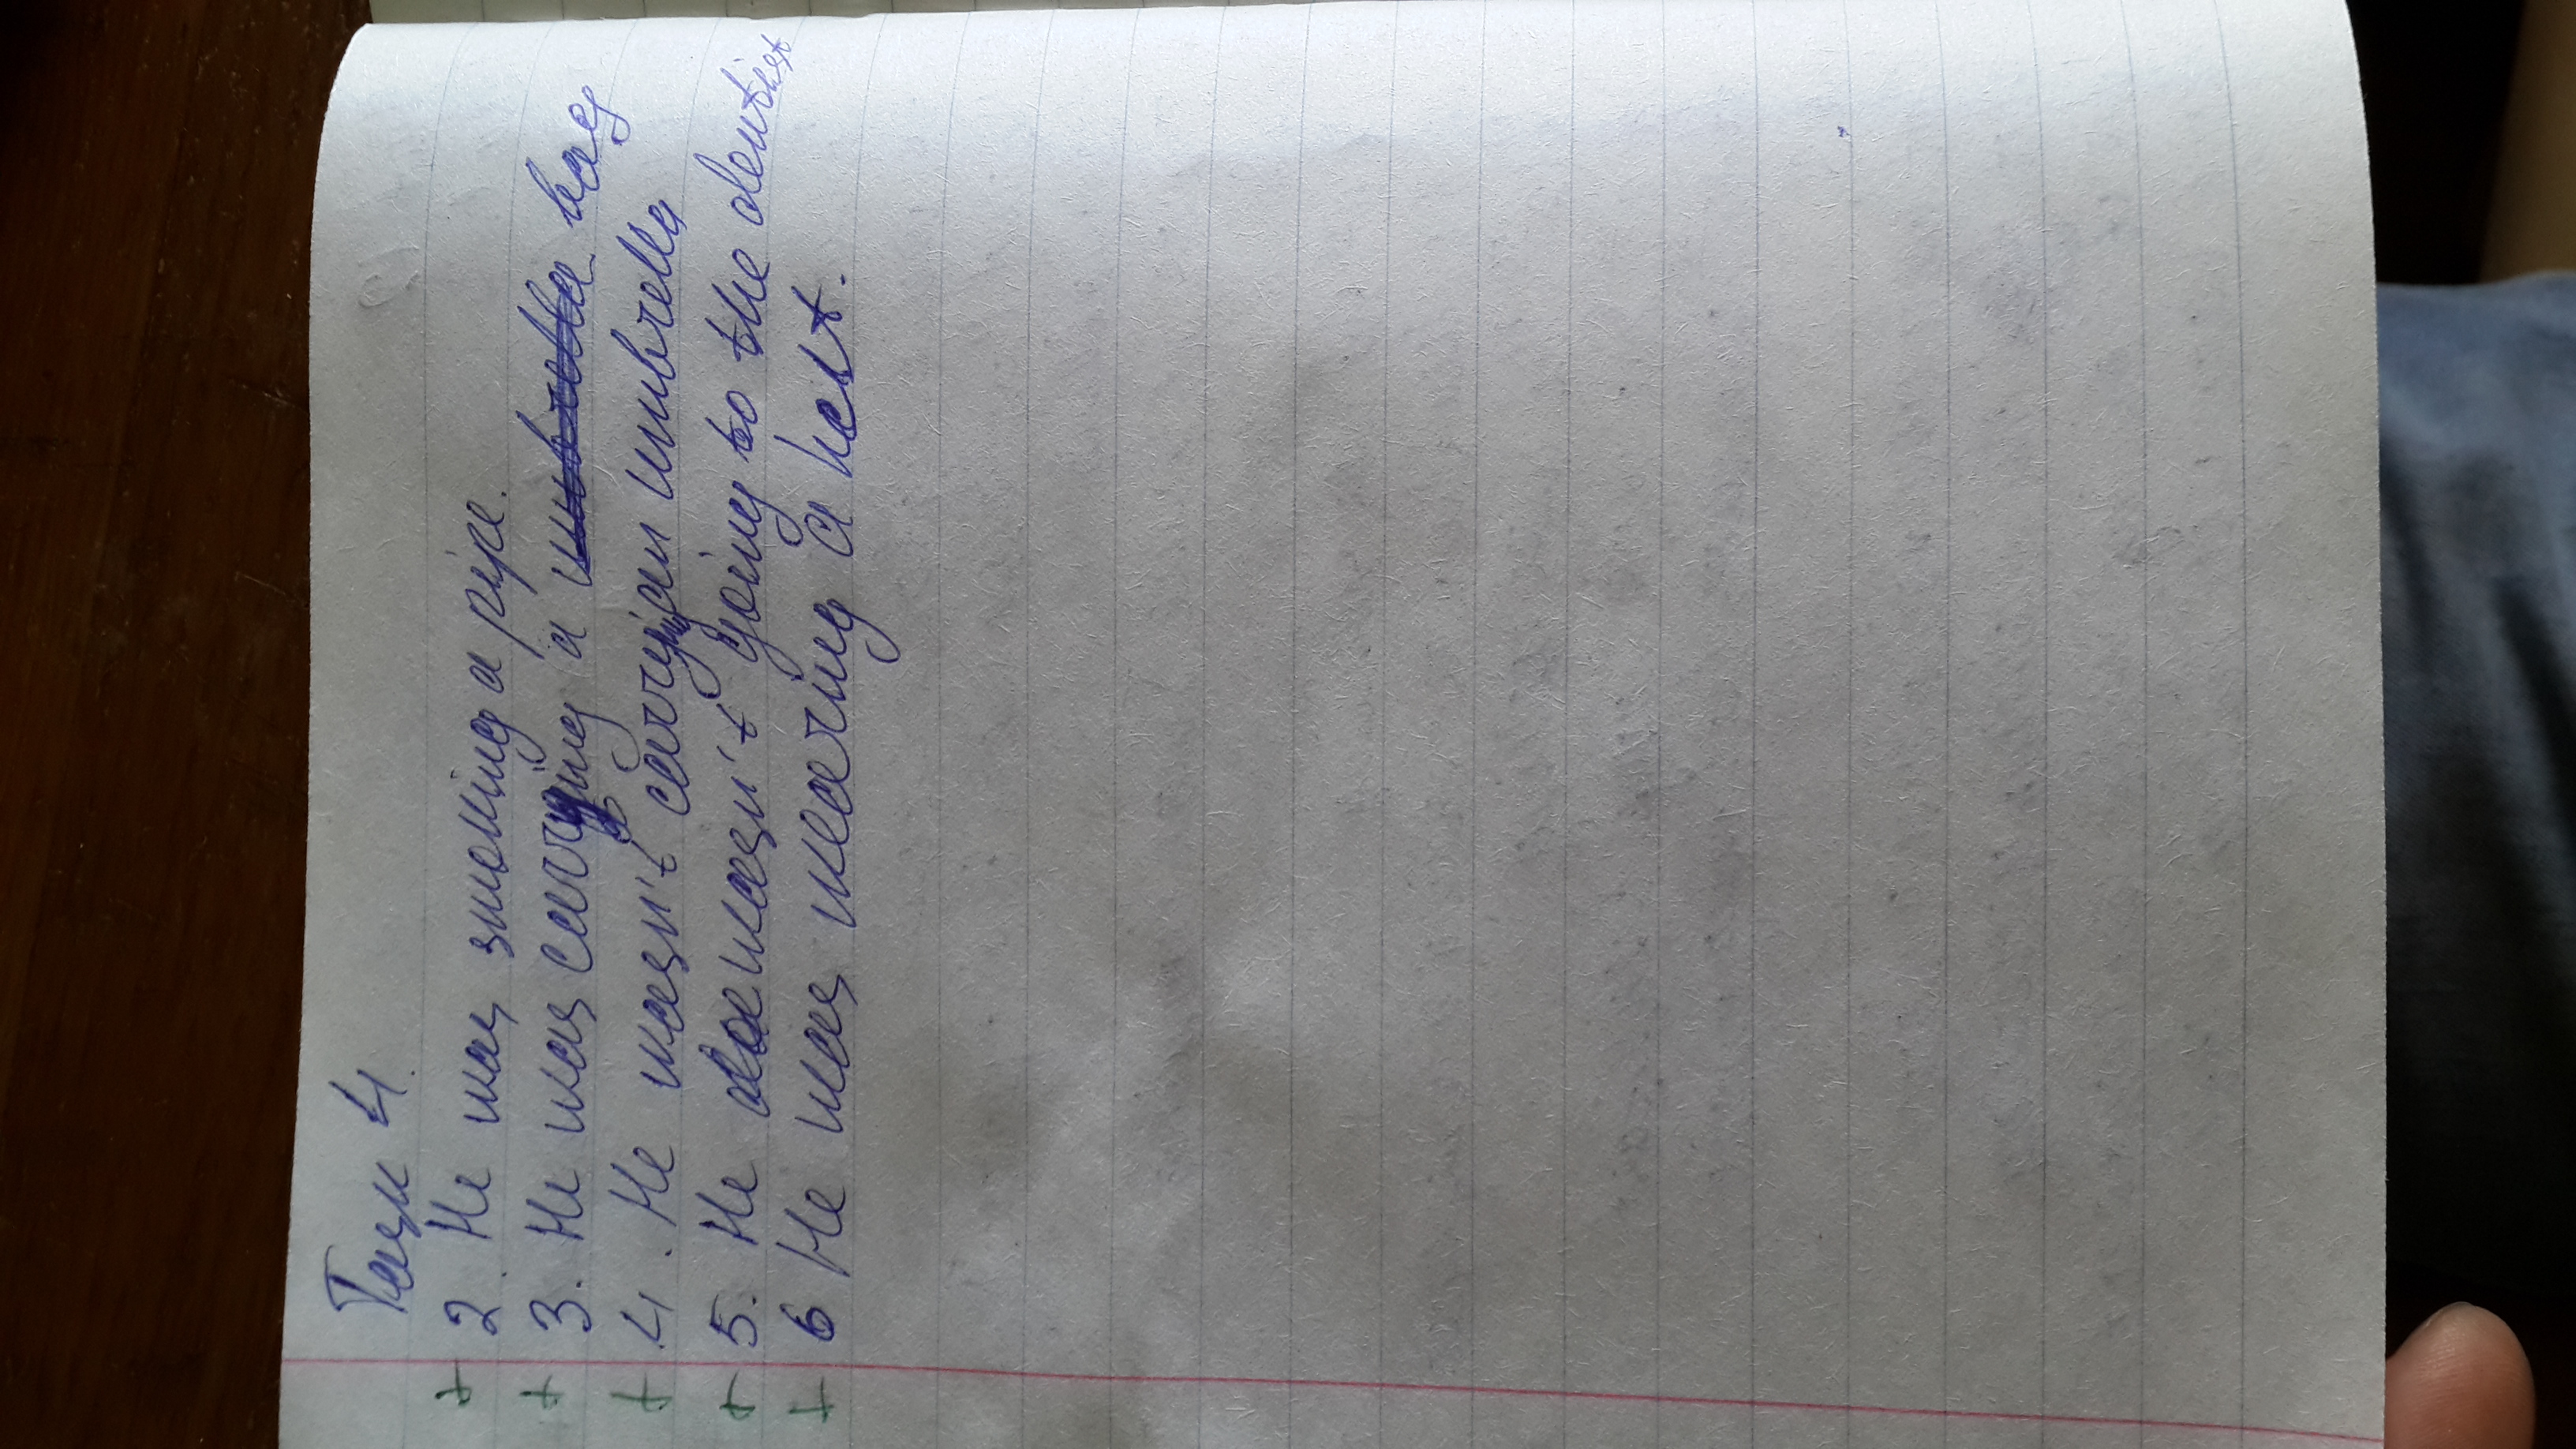 Task 4.
+ 2. He was smoking a pipe.
+ 3. He was carrying a umbrella bag
+ 4. He wasn't carrying an umbrella
+ 5. He doe wasn't going to the dentist
+ 6 He was wearing a hat.